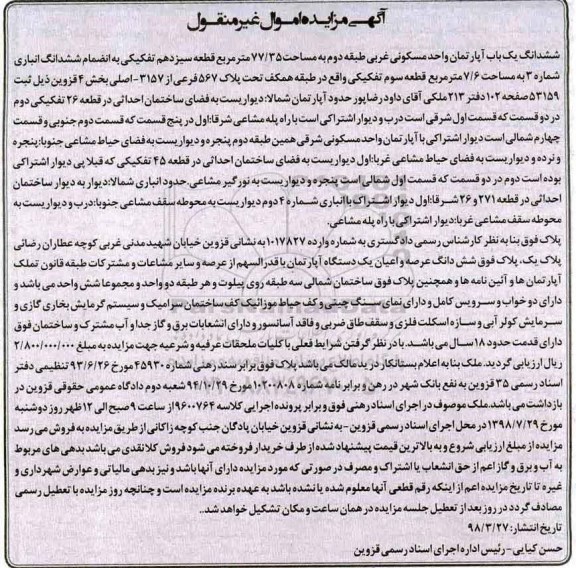 آگهی مزایده اموال غیر منقول
ششدانگ یک باب آپارتمان واحد مسکونی غربی طبقه دوم به مساحت ۷۷/۳۵ متر مربع قطعه سیزدهم تفکیکی به انضمام ششدانگ انباری
شماره ۳ به مساحت ۷/۶ متر مربع قطعه سوم تفکیکی واقع در طبقه همکف تحت پلاک ۵۶۷ فرعی از ۳۱۵۷- اصلی بخش ۴ قزوین ذیل ثبت
۵۳۱۵۹ صفحه ۱۰۲ دفتر ۲۱۳ ملکی آقای داود رضاپور حدود آپارتمان شمالا: دیواریست به فضای ساختمان احداثی در قطعه ۲۶ تفکیکی دوم
در دو قسمت که قسمت اول شرقی است درب و دیوار اشتراکی است با راه پله مشاعی شرقا: اول در پنج قسمت که قسمت دوم جنوبی و قسمت
چهارم شمالی است دیوار اشتراکی با آپارتمان واحد مسکونی شرقی همین طبقه دوم پنجره و دیواریست به فضای حیاط مشاعی جنوبا: پنجره
و نرده و دیواریست به فضای حیاط مشاعی غربا: اول دیواریست به فضای ساختمان احداثی در قطعه ۴۵ تفکیکی که قبلا پی دیوار اشتراکی
بوده است دوم در دو قسمت که قسمت اول شمالی است پنجره و دیواریست به نورگیر مشاعی. حدود انباری شمالا: دیوار به دیوار ساختمان
احداثی در قطعه ۲۷۱ و ۲۶ شرقا: اول دیوار اشتراک با انباری شماره ۴ دوم دیواریست به محوطه سقف مشاعی جنوبا: درب و دیواریست به
محوطه سقف مشاعی غربا: دیوار اشتراکی با راه پله مشاعی.
پلاک فوق بنا به نظر کارشناس رسمی دادگستری به شماره وارده ۱۰۱۷۸۲۷ به نشانی قزوین خیابان شهید مدنی غربی کوچه عطاران رضائی
پلاک یک. پلاک فوق شش دانگ عرصه و اعیان یک دستگاه آپارتمان با قدرالسهم از عرصه و سایر مشاعات و مشترکات طبقه قانون تملک
آپارتمان ها و آئین نامه ها و همچنین پلاک فوق ساختمان شمالی سه طبقه روی پیلوت و هر طبقه دو واحد و مجموعا شش واحد می باشد و
دارای دو خواب و سرویس کامل و دارای نمای سنگ چینی و کف حیاط موزائیک کف ساختمان سرامیک و سیستم گرمایش بخاری گازی و
سرمایش کولر آبی و سازه اسکلت فلزی و سقف طاق ضربی و فاقد آسانسور و دارای انشعابات برق و گاز جدا و آب مشترک و ساختمان فوق
دارای قدمت حدود ۱۸ سال می باشد. با در نظر گرفتن شرایط فعلی با کلیات ملحقات عرفیه و شرعیه جهت مزایده به مبلغ ۲/۸۰۰/۰۰۰/۰۰۰
ریال ارزیابی گردید. ملک بنا به اعلام بستانکار در ید مالک می باشد پلاک فوق برابر سند رهنی شماره ۴۵۹۳۰ مورخ ۹۳/۶/۲۶ تنظیمی دفتر
اسناد رسمی ۳۵ قزوین به نفع بانک شهر در رهن و برابر نامه شماره ۱۰۲۰۸۰۸ مورخ ۹۴/۱۰/۲۹ شعبه دوم دادگاه عمومی حقوقی قزوین در
بازداشت می باشد. ملک موصوف در اجرای اسناد رهنی فوق و برابر پرونده اجرایی کلاسه ۹۶۰۰۷۶۴ از ساعت ۹ صبح الی ۱۲ ظهر روز دوشنبه
مورخ ۱۳۹۸/۷/۲۹ در محل اجرای اسناد رسمی قزوین - به نشانی قزوین خیابان پادگان جنب کوچه زاکانی از طریق مزایده به فروش می رسد
مزایده از مبلغ ارزیابی شروع و به بالاترین قیمت پیشنهاد شده از طرف خریدار فروخته می شود فروش کلا نقدی می باشد بدهی های مربوط
به آب و برق و گاز اعم از حق انشعاب یا اشتراک و مصرف در صورتی که مورد مزایده دارای آنها باشد و نیز بدهی مالیاتی و عوارض شهرداری و
غیره تا تاریخ مزایده اعم از اینکه رقم قطعی آنها معلوم شده یا نشده باشد به عهده برنده مزایده است و چنانچه روز مزایده با تعطیل رسمی
مصادف گردد در روز بعد از تعطیل جلسه مزایده در همان ساعت و مکان تشکیل خواهد شد..
تاریخ انتشار: ۹۸/۳/۲۷
حسن کیایی - رئیس اداره اجرای اسناد رسمی قزوین